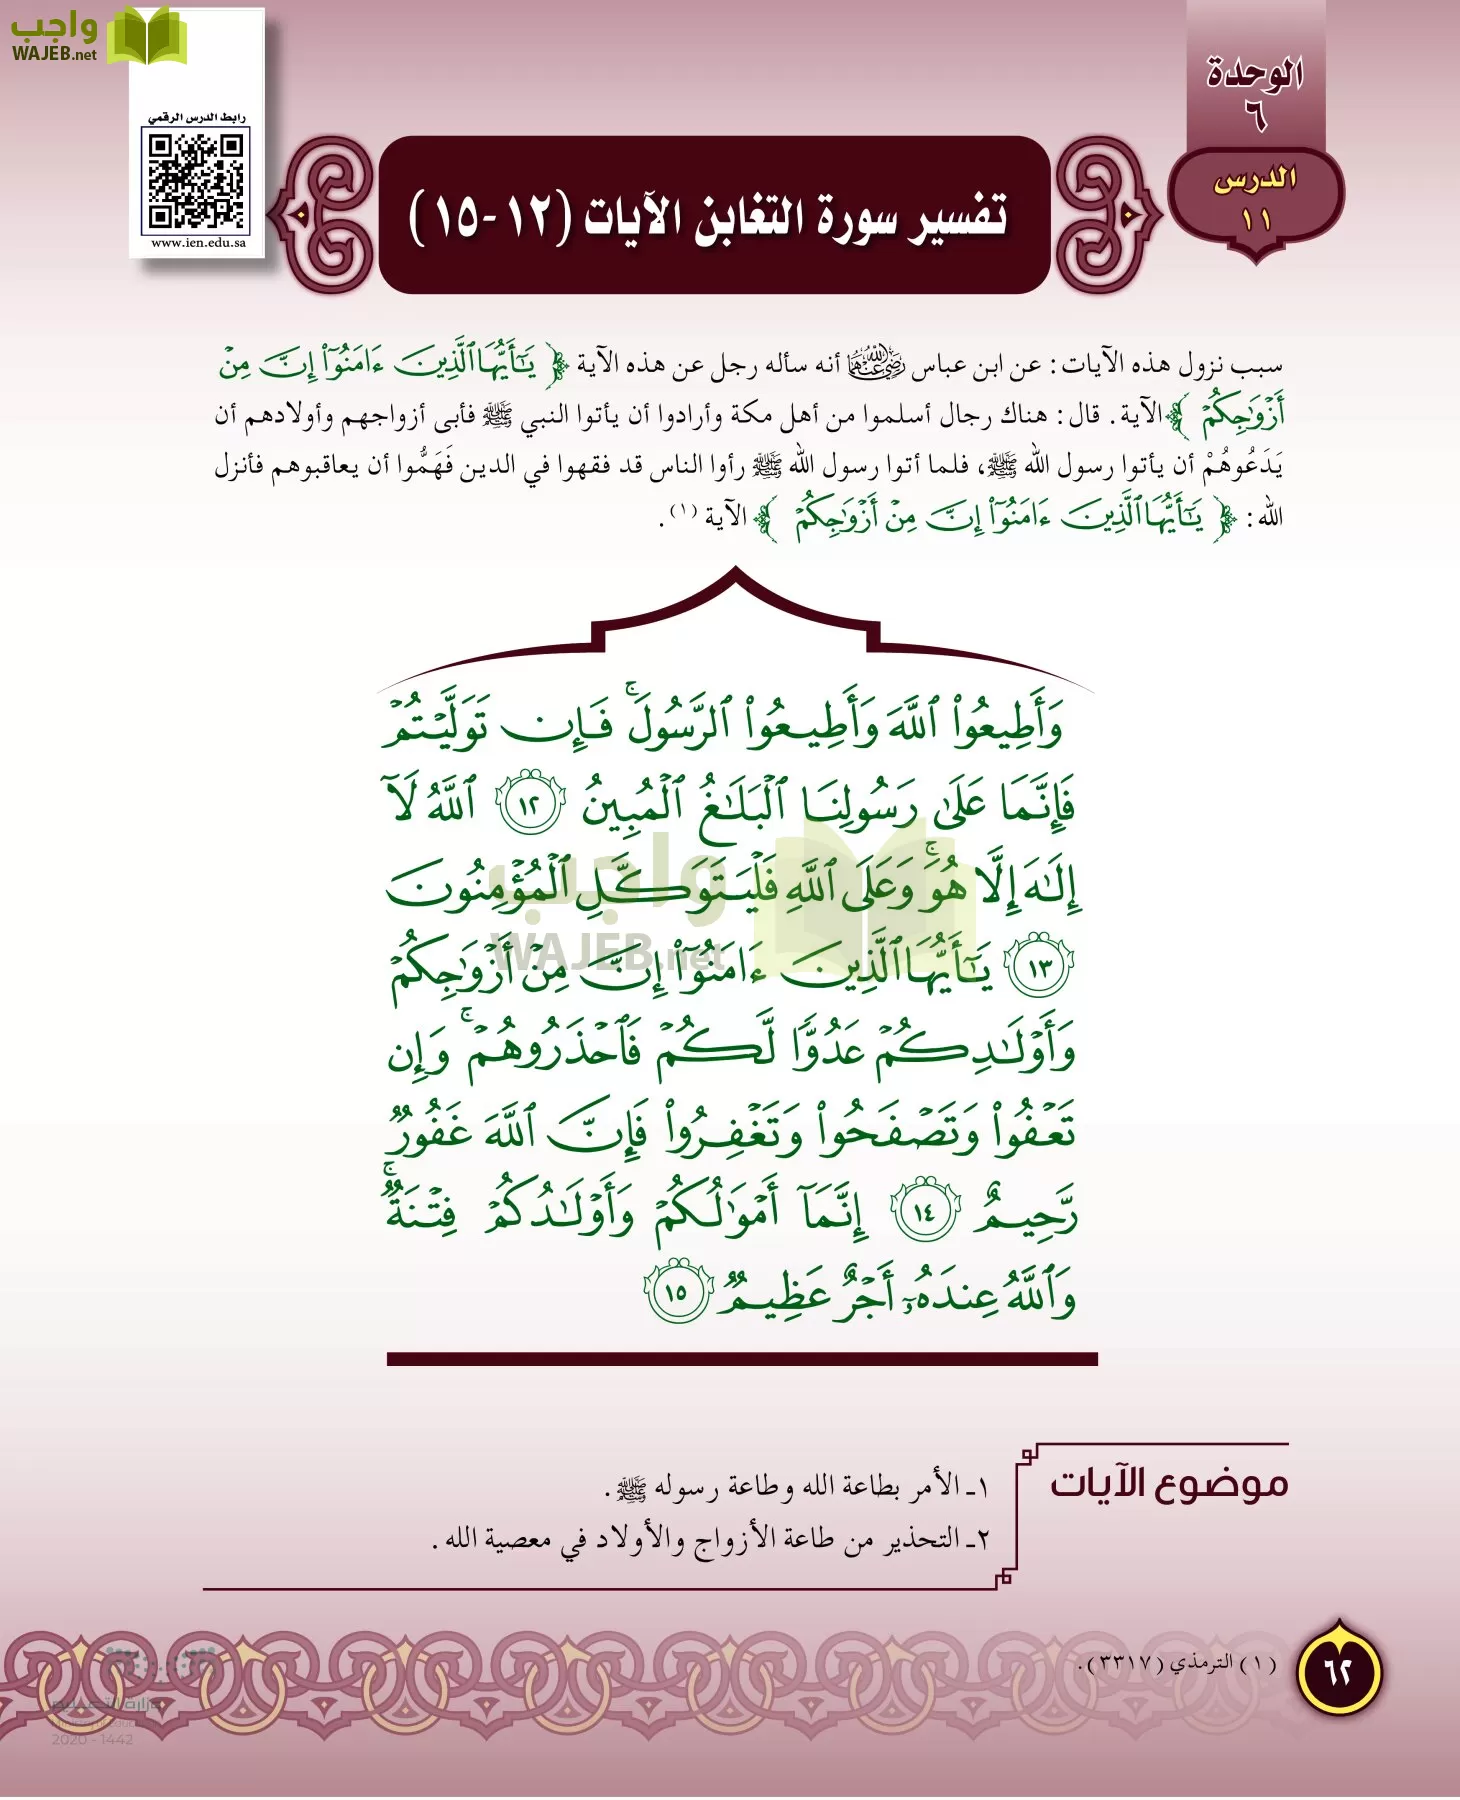 واجب
WAJEB.net
رابط الدرس الرقمي
www.ien.edu.sa
الوحدة
٦
الدرس
١١
تفسير سورة التغابن الآيات (١٢-١٥)
سبب نزول هذه الآيات: عن ابن عباس رضي الله عنهما أنه سأله رجل عن هذه الآية ﴿ يَٰٓأَيُّهَا ٱلَّذِينَ ءَامَنُوٓا۟ إِنَّ مِنْ
أَزْوَٰجِكُمْ ﴾ الآية. قال: هناك رجال أسلموا من أهل مكة وأرادوا أن يأتوا النبي ﷺ فأبى أزواجهم وأولادهم أن
يَدَعُوهُمْ أن يأتوا رسول الله ﷺ، فلما أتوا رسول الله ﷺ رأوا الناس قد فقهوا في الدين فَهَمُّوا أن يعاقبوهم فأنزل
الله: ﴿ يَٰٓأَيُّهَا ٱلَّذِينَ ءَامَنُوٓا۟ إِنَّ مِنْ أَزْوَٰجِكُمْ ﴾ الآية (١).
وَأَطِيعُوا۟ ٱللَّهَ وَأَطِيعُوا۟ ٱلرَّسُولَ ۚ فَإِن تَوَلَّيْتُمْ
فَإِنَّمَا عَلَىٰ رَسُولِنَا ٱلْبَلَٰغُ ٱلْمُبِينُ ١٢ ٱللَّهُ لَآ
إِلَٰهَ إِلَّا هُوَ ۚ وَعَلَى ٱللَّهِ فَلْيَتَوَكَّلِ ٱلْمُؤْمِنُونَ
١٣ يَٰٓأَيُّهَا ٱلَّذِينَ ءَامَنُوٓا۟ إِنَّ مِنْ أَزْوَٰجِكُمْ
وَأَوْلَٰدِكُمْ عَدُوًّا لَّكُمْ فَٱحْذَرُوهُمْ ۚ وَإِن
تَعْفُوا۟ وَتَصْفَحُوا۟ وَتَغْفِرُوا۟ فَإِنَّ ٱللَّهَ غَفُورٌ
رَّحِيمٌ ١٤ إِنَّمَآ أَمْوَٰلُكُمْ وَأَوْلَٰدُكُمْ فِتْنَةٌ ۚ
وَٱللَّهُ عِندَهُۥٓ أَجْرٌ عَظِيمٌ ١٥
واجب
WAJEB.net
موضوع الآيات
١ـ الأمر بطاعة الله وطاعة رسوله ﷺ.
٢ـ التحذير من طاعة الأزواج والأولاد في معصية الله.
(١) الترمذي (٣٣١٧).
٦٢
وزارة التعليم
Ministry of Education
2020 - 1442